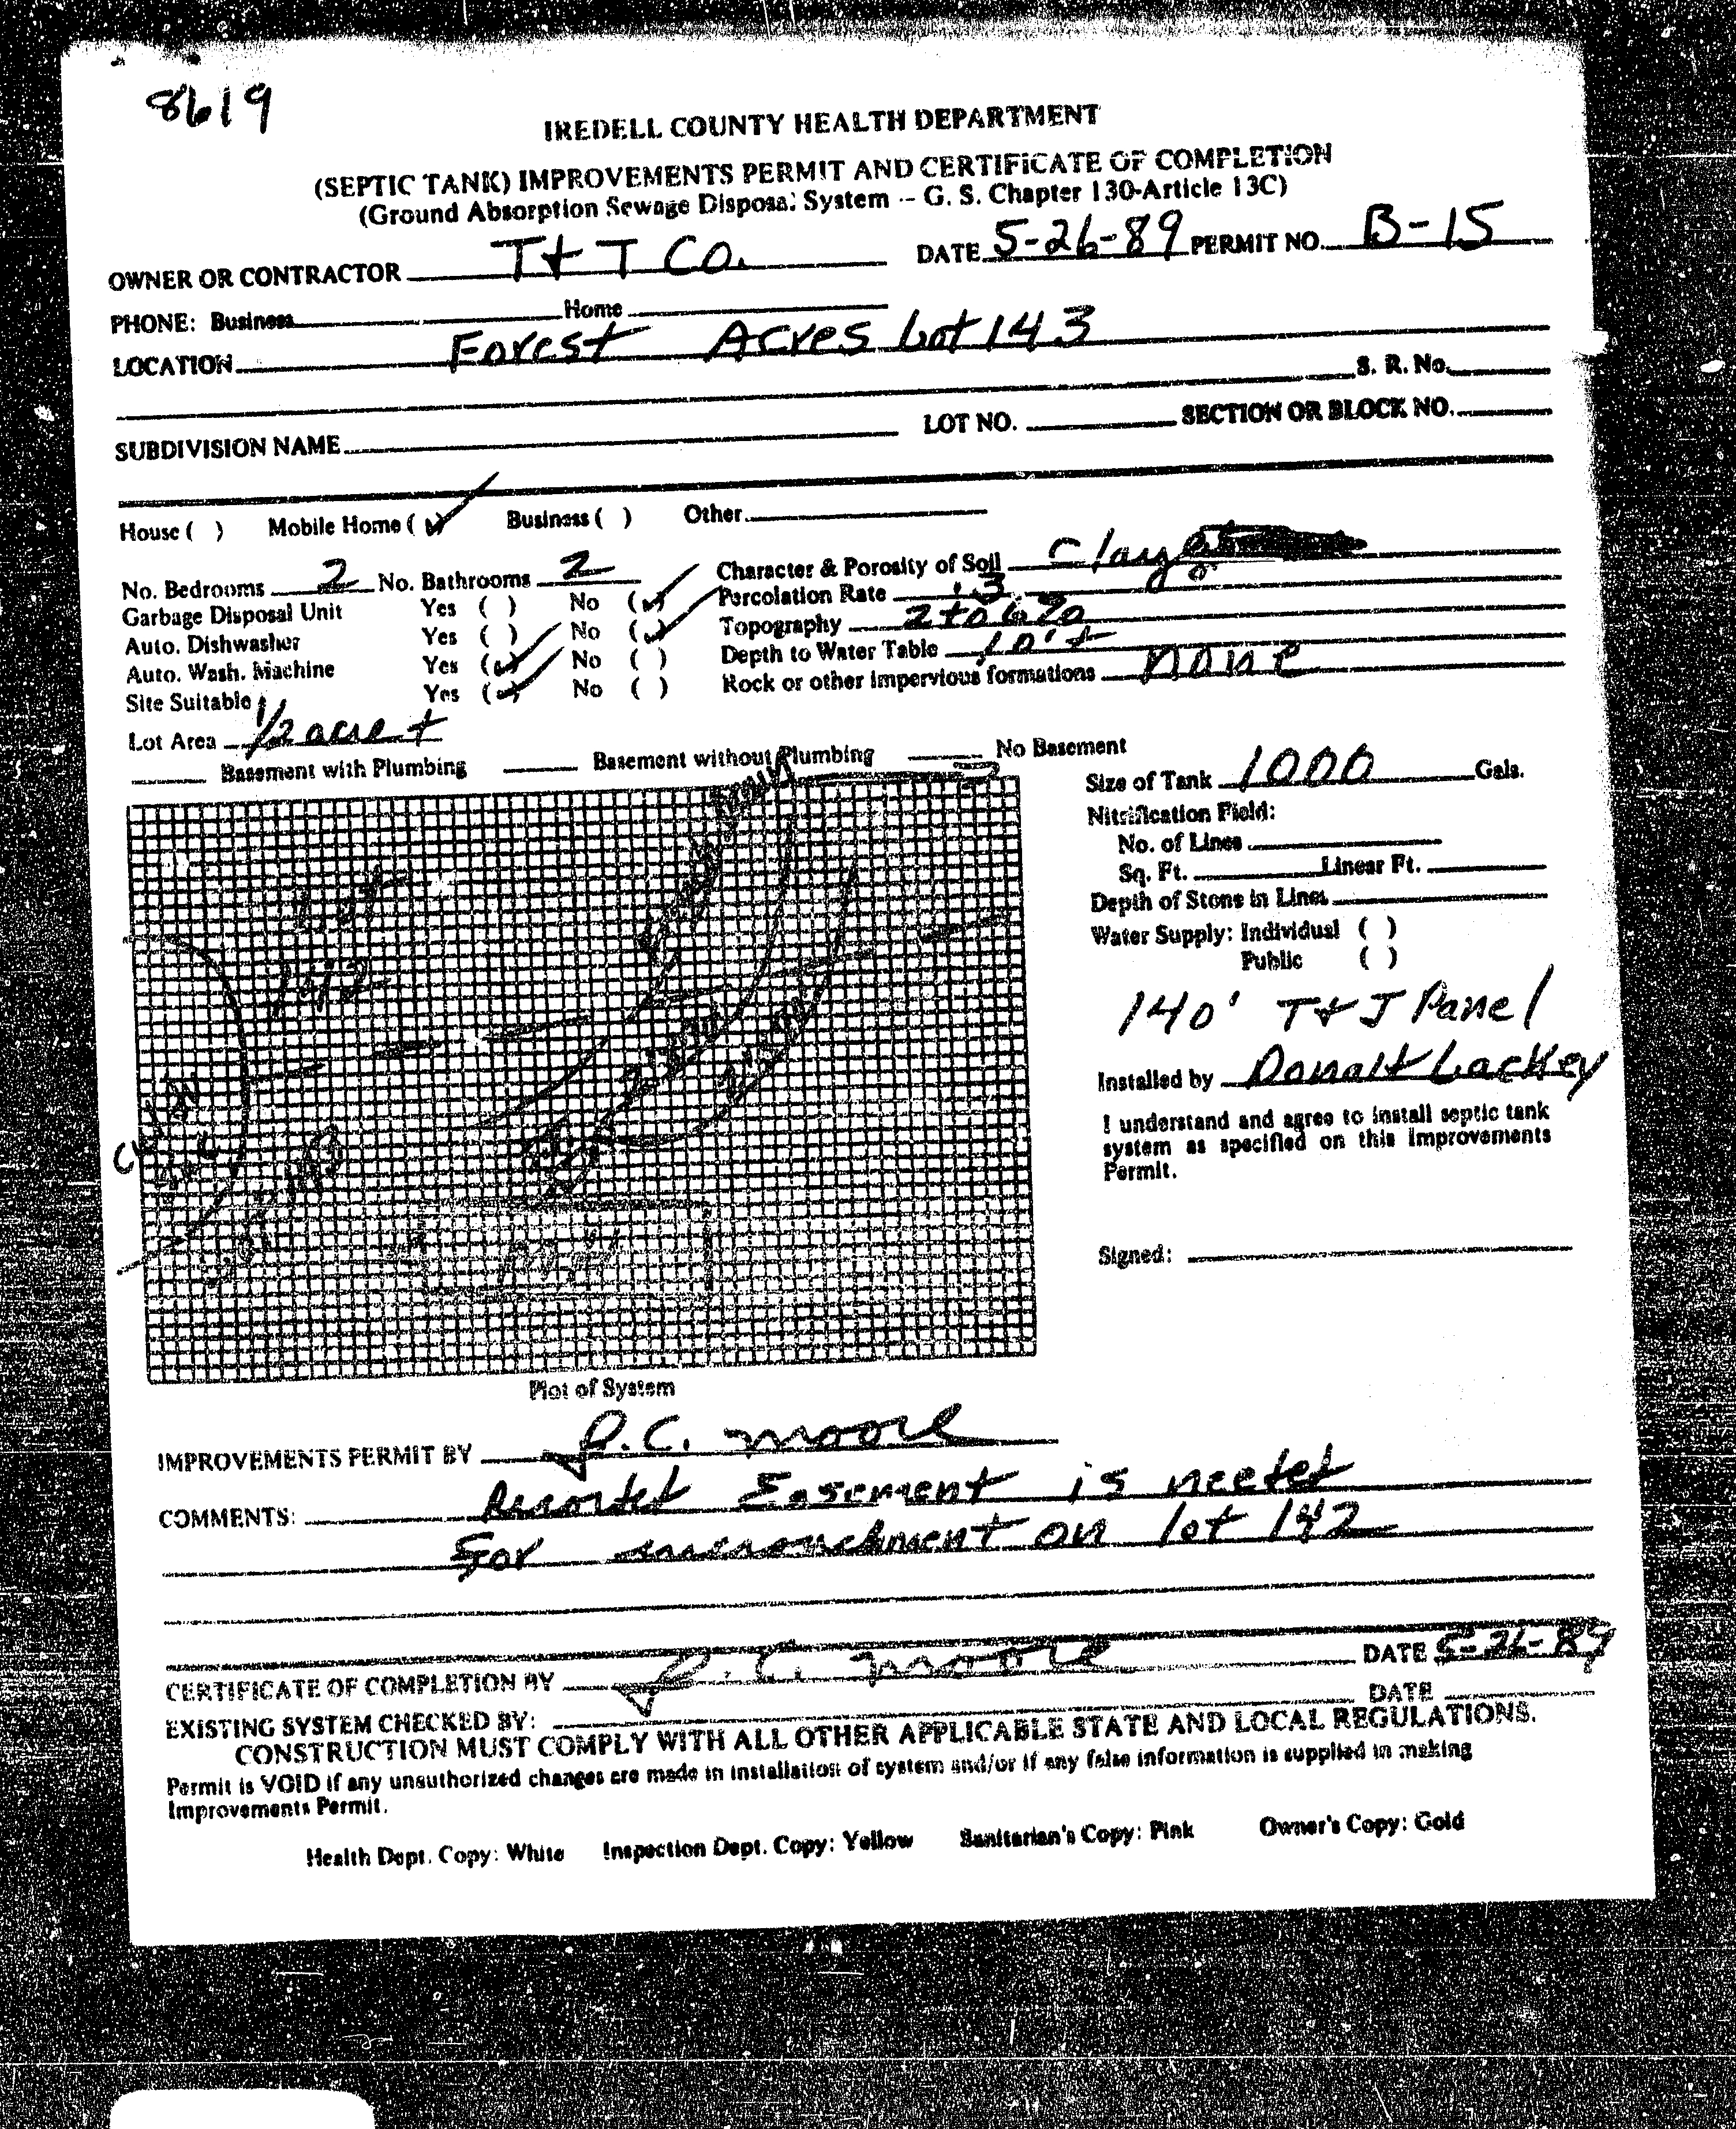 8619
IREDELL COUNTY HEALTH DEPARTMENT
(SEPTIC TANK) IMPROVEMENTS PERMIT AND CERTIFICATE OF COMPLETION
(Ground Absorption Sewage Disposal System -- G. S. Chapter 130-Article 13C)
OWNER OR CONTRACTOR T & T Co. DATE 5-26-89 PERMIT NO. B-15
PHONE: Business Home
LOCATION Forest Acres Lot 143
S. R. No.
SUBDIVISION NAME LOT NO. SECTION OR BLOCK NO.
House ( ) Mobile Home (✓) Business ( ) Other
No. Bedrooms 2 No. Bathrooms 2 Character & Porosity of Soil Clay
Garbage Disposal Unit Yes ( ) No (✓) Percolation Rate .3
Auto. Dishwasher Yes ( ) No (✓) Topography 2 to 6%
Auto. Wash. Machine Yes (✓) No ( ) Depth to Water Table 10'+
Site Suitable Yes (✓) No ( ) Rock or other impervious formations none
Lot Area 1/2 acre +
Basement with Plumbing Basement without Plumbing No Basement
Size of Tank 1000 Gals.
Nitrification Field:
No. of Lines
Sq. Ft. Linear Ft.
Depth of Stone in Lines
Water Supply: Individual ( )
Public ( )
Lot
142
140' T & J Panel
Installed by Donalt Lackey
I understand and agree to install septic tank
system as specified on this Improvements
Permit.
143
Signed:
Plot of System
IMPROVEMENTS PERMIT BY J.C. Moore
COMMENTS: Recorded Easement is needed
For encroachment on lot 142
CERTIFICATE OF COMPLETION BY J.C. Moore DATE 5-26-89
EXISTING SYSTEM CHECKED BY: DATE
CONSTRUCTION MUST COMPLY WITH ALL OTHER APPLICABLE STATE AND LOCAL REGULATIONS.
Permit is VOID if any unauthorized changes are made in installation of system and/or if any false information is supplied in making
Improvements Permit.
Health Dept. Copy: White Inspection Dept. Copy: Yellow Sanitarian's Copy: Pink Owner's Copy: Gold